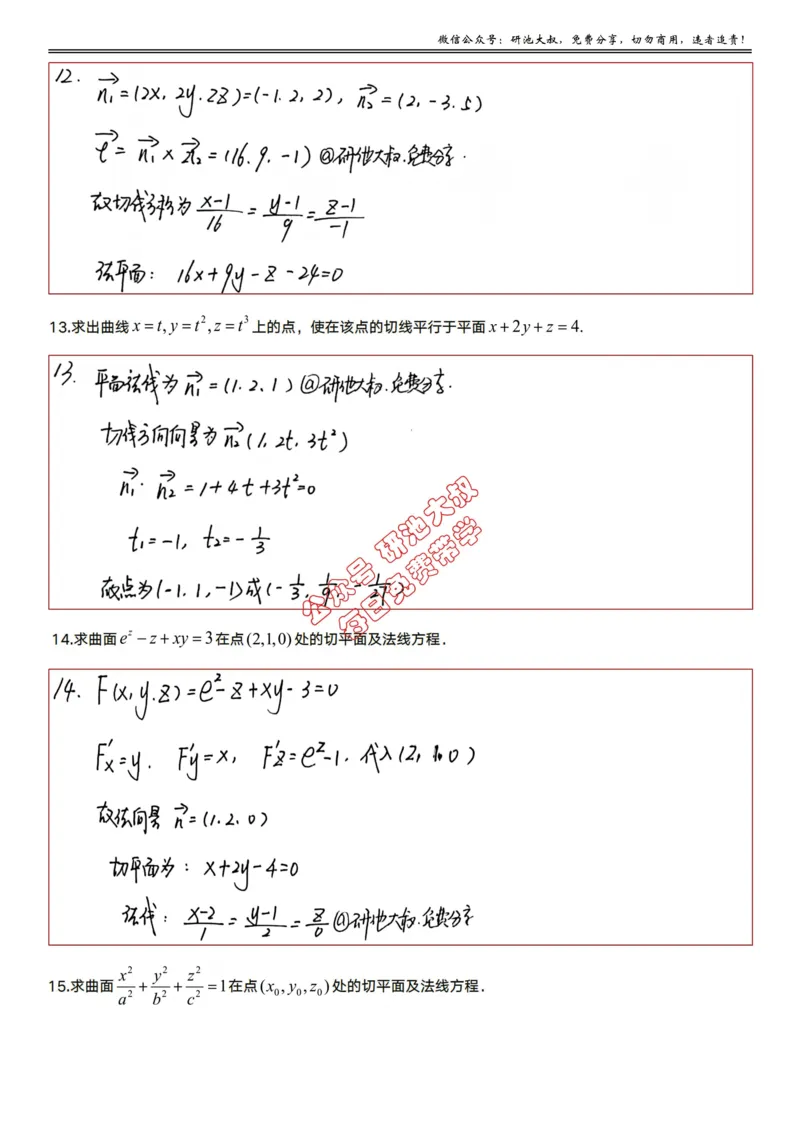 微信公众号：研池大叔，免费分享，切勿商用，违者追责！
12. n₁⃗=(2x, 2y. 2z)=(-1. 2, 2), n₂⃗=(2, -3. 5)
τ⃗= n₁⃗ × n₂⃗ = (16. 9, -1) @研池大叔.免费分享.
故切线方程为 (x-1)/16 = (y-1)/9 = (z-1)/-1
法平面: 16x+9y-z-24=0
13.求出曲线x=t, y=t²,z=t³上的点，使在该点的切线平行于平面x+2y+z=4.
13. 平面法线为 n₁⃗=(1. 2、1) @研池大叔.免费分享.
切线方向向量为 n₂⃗(1, 2t, 3t²)
n₁⃗· n₂⃗ =1+4t+3t²=0
t₁=-1, t₂=-1/3
故点为(-1. 1, -1)或(-1/3, 1/9, -1/27)
公众号 研池大叔
每日免费带学
14.求曲面eᶻ-z+xy=3在点(2,1,0)处的切平面及法线方程.
14. F(x,y.z)=eᶻ-z+xy-3=0
F'x=y. F'y=x, F'z=eᶻ-1. 代入(2, 1, 0)
故法向量 n⃗=(1. 2. 0)
切平面为: x+2y-4=0
法线: (x-2)/1 = (y-1)/2 = z/0 @研池大叔.免费分享
15.求曲面 x²/a² + y²/b² + z²/c² =1在点(x₀,y₀,z₀)处的切平面及法线方程.